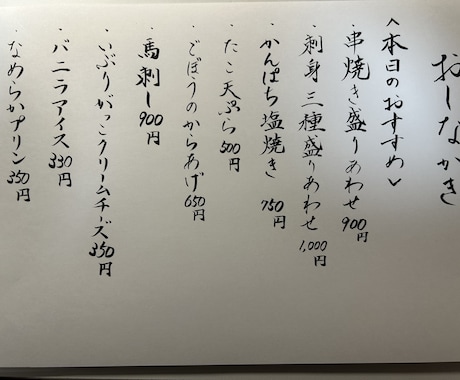 おしながき
<本日のおすすめ>
・串焼き盛りあわせ 900円
・刺身三種盛りあわせ 1,000円
・かんぱち塩焼き 750円
・たこ天ぷら 500円
・ごぼうのからあげ 650円
馬刺し 900円
・いぶりがっこクリームチーズ 350円
・バニラアイス 330円
・なめらかプリン 350円